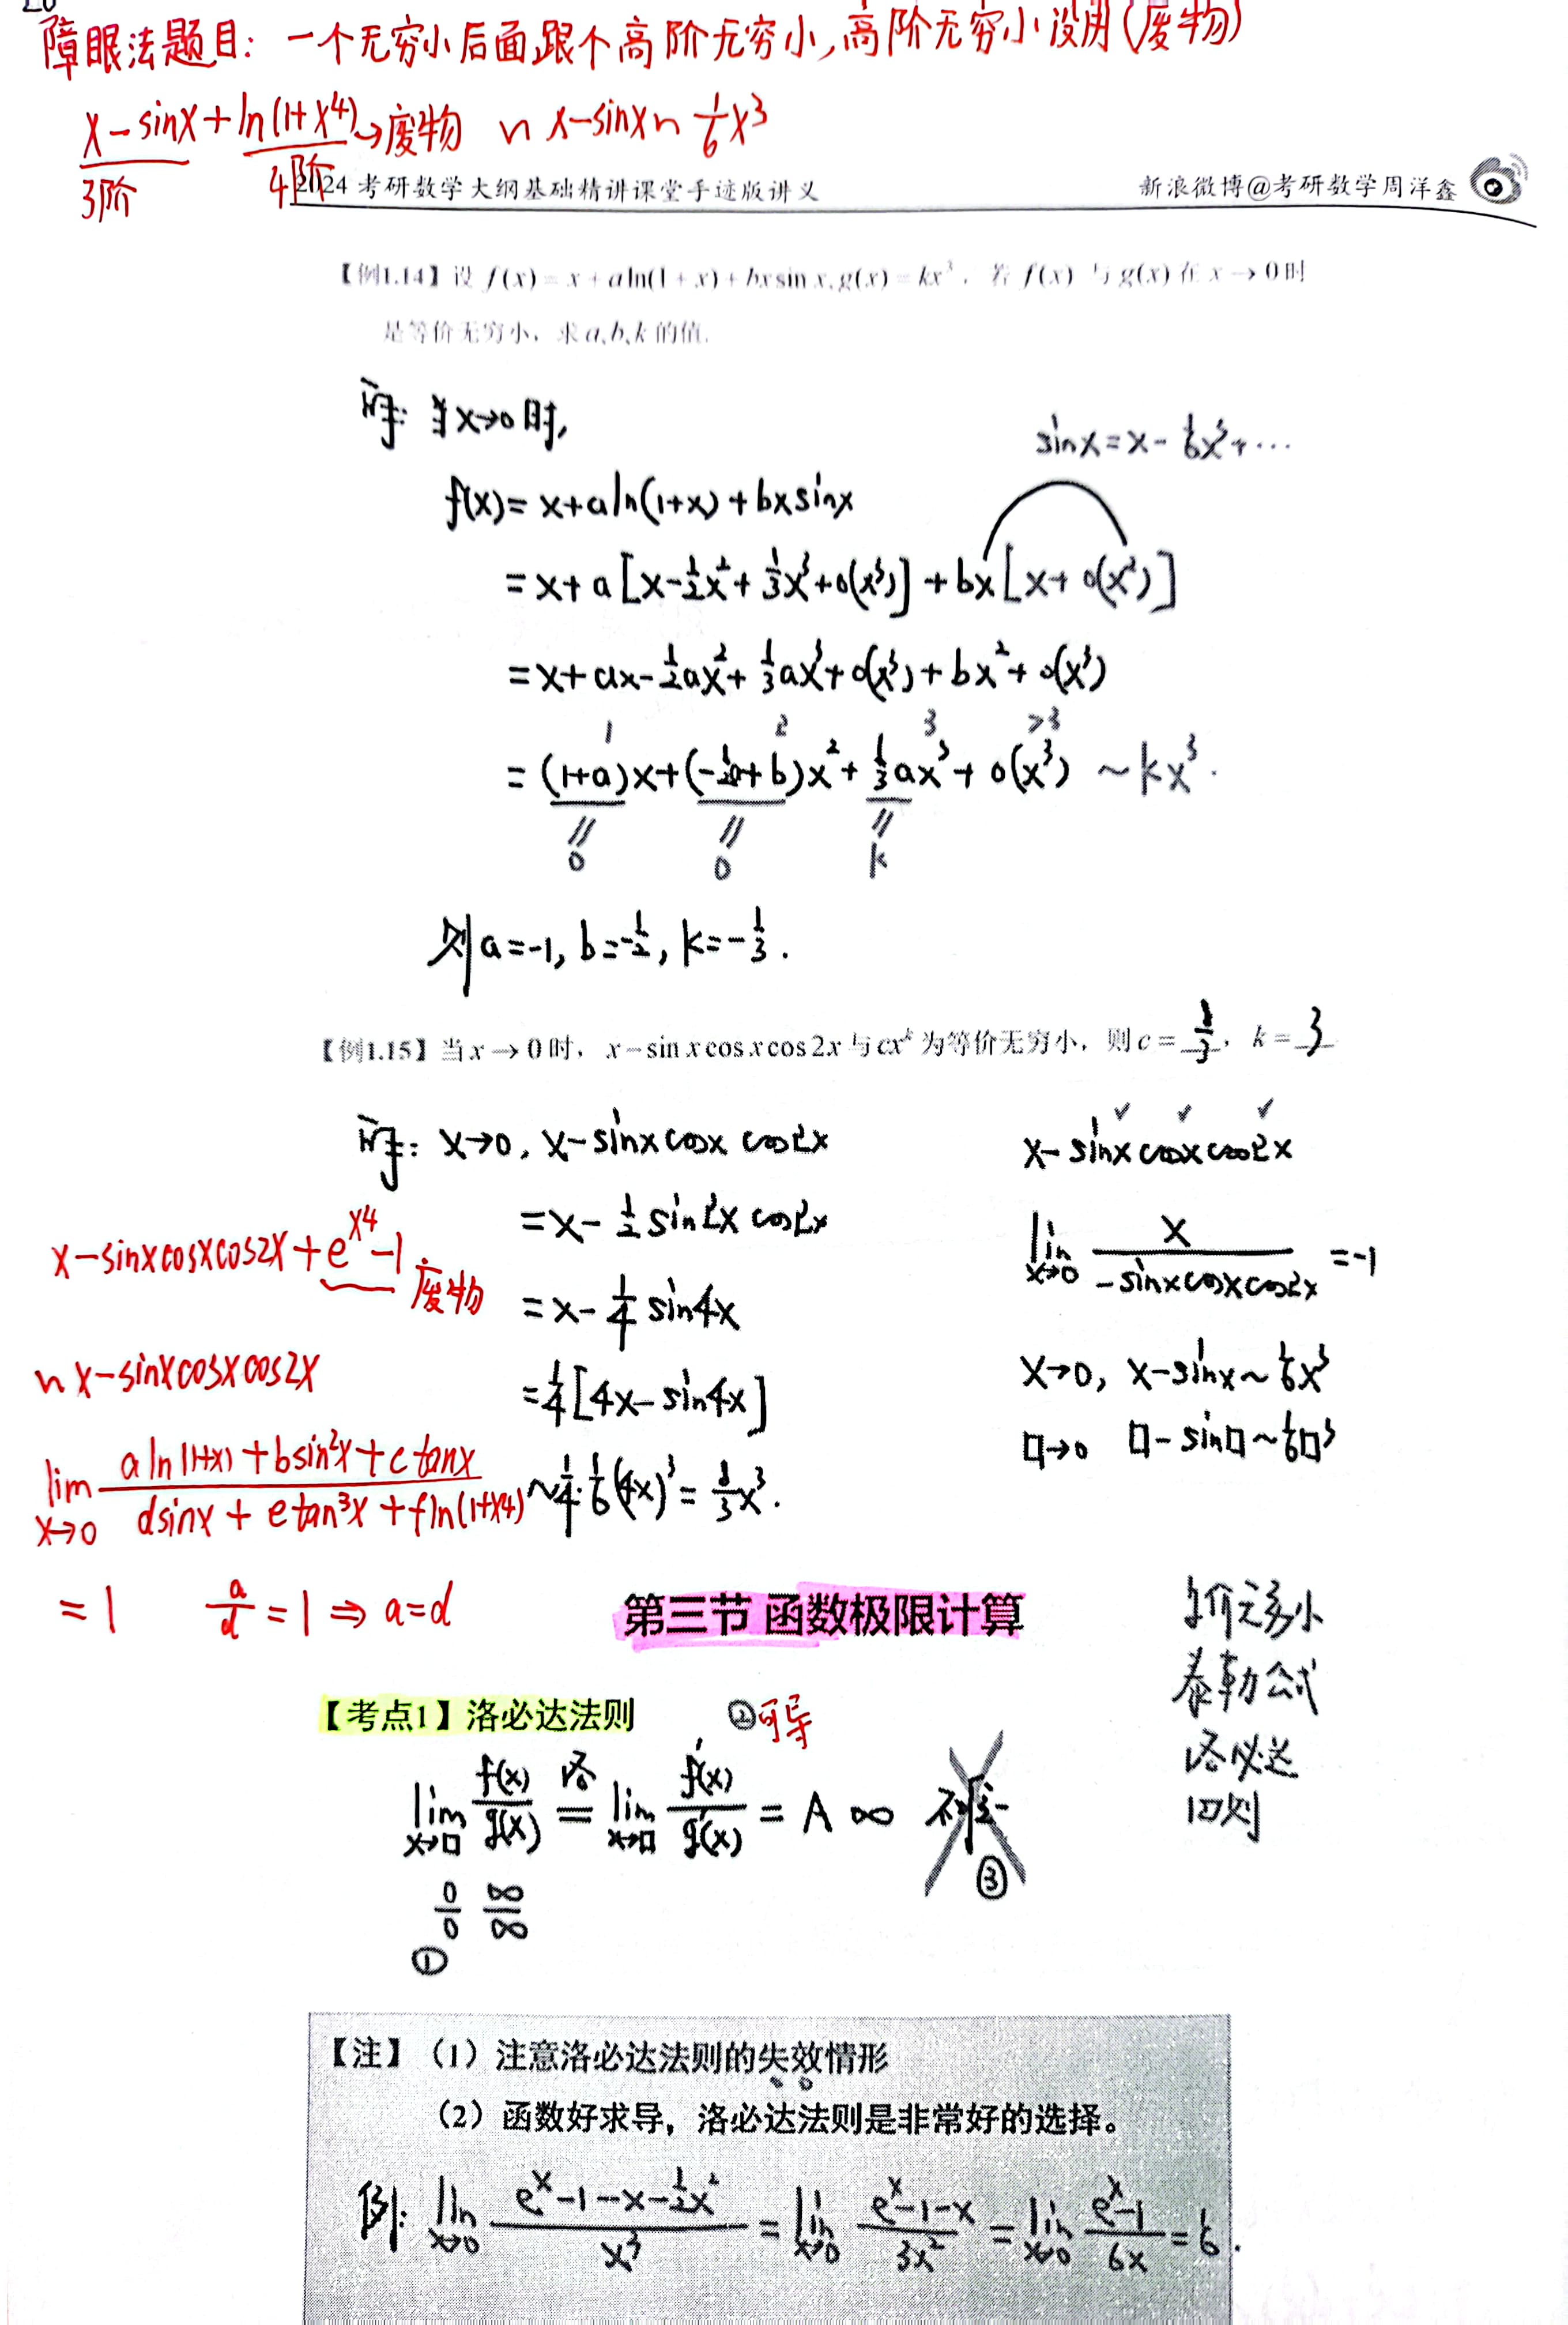 障眼法题目：一个无穷小后面跟个高阶无穷小，高阶无穷小没用（废物）
x-sinx+ln(1+x⁴)→废物 ~ x-sinx ~ 1/6 x³
3阶 4阶
2024 考研数学大纲基础精讲课堂手迹版讲义
新浪微博@考研数学周洋鑫
【例1.14】设 f(x)=x+aln(1+x)+bxsin x, g(x)=kx³，若 f(x) 与 g(x) 在 x→0时
是等价无穷小，求 a,b,k 的值.
解：当x→0时，
sinx=x-1/6x³+…
f(x)=x+aln(1+x)+bxsinx
=x+a[x-1/2x²+1/3x³+o(x³)]+bx[x+o(x²)]
=x+ax-1/2ax²+1/3ax³+o(x³)+bx²+o(x³)
1 2 3 >3
=(1+a)x+(-1/2a+b)x²+1/3ax³+o(x³) ~kx³.
= = =
0 0 k
则 a=-1, b=-1/2, k=-1/3.
【例1.15】当 x→0时，x-sin x cos x cos 2x 与 cxᵏ 为等价无穷小，则 c=8/3，k=3
解：x→0, x-sinxcosx cos2x
=x-1/2sin2x cos2x
=x-1/4 sin4x
=1/4[4x-sin4x]
~1/4·1/6(4x)³=8/3x³.
x-sinxcosxcos2x
lim x→0 x/(-sinxcosxcos2x)=-1
x→0, x-sinx~1/6x³
□→0 □-sin□~1/6□³
x-sinxcosxcos2x+e^(x⁴)-1 废物
~ x-sinxcosxcos2x
lim x→0 (aln(1+x)+bsin²x+ctanx)/(dsinx+etan³x+fln(1+x⁴))
=1 a/d=1⇒a=d
第三节 函数极限计算
等价无穷小
泰勒公式
洛必达
四则
【考点1】洛必达法则
②可导
lim x→□ f(x)/g(x) 洛= lim x→□ f'(x)/g'(x) = A ∞ 不存在
③
0/0 ∞/∞
①
【注】（1）注意洛必达法则的失效情形
（2）函数好求导，洛必达法则是非常好的选择。
例：lim x→0 (eˣ-1-x-1/2x²)/x³ = lim x→0 (eˣ-1-x)/3x² = lim x→0 (eˣ-1)/6x = 1/6.